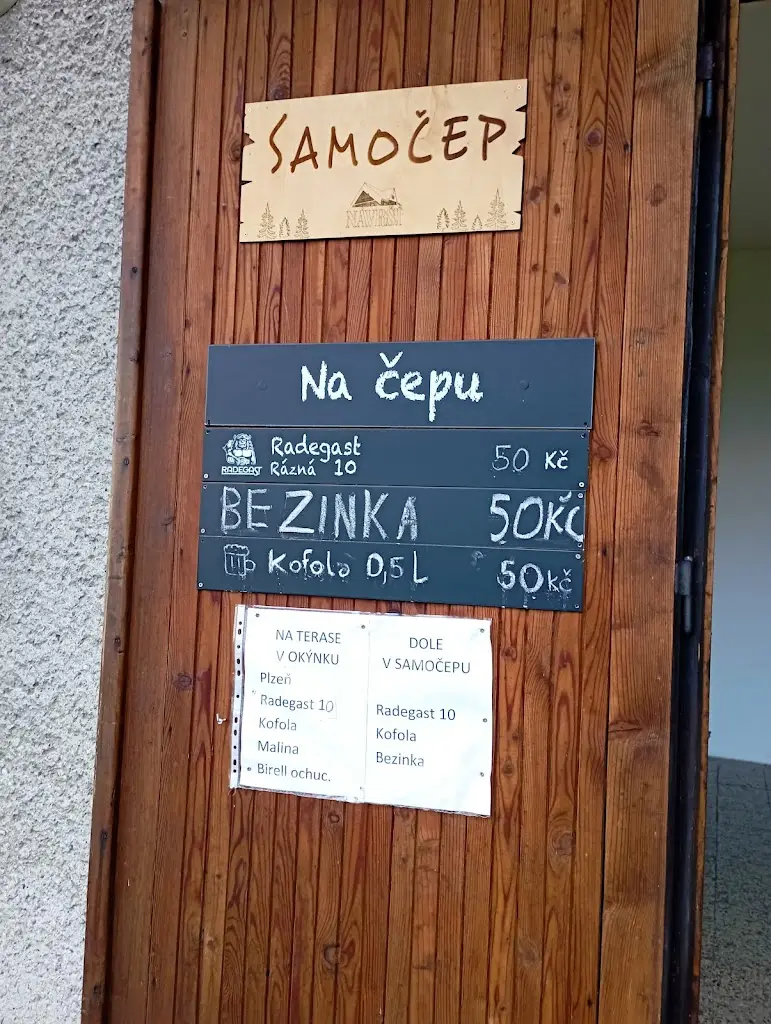 SAMOČEP
NÁVRŠÍ
Na čepu
RADEGAST
Radegast
Rázná 10
50 Kč
BEZINKA 50Kč
Kofola 0,5L 50kč
NA TERASE
V OKÝNKU
Plzeň
Radegast 10
Kofola
Malina
Birell ochuc.
DOLE
V SAMOČEPU
Radegast 10
Kofola
Bezinka